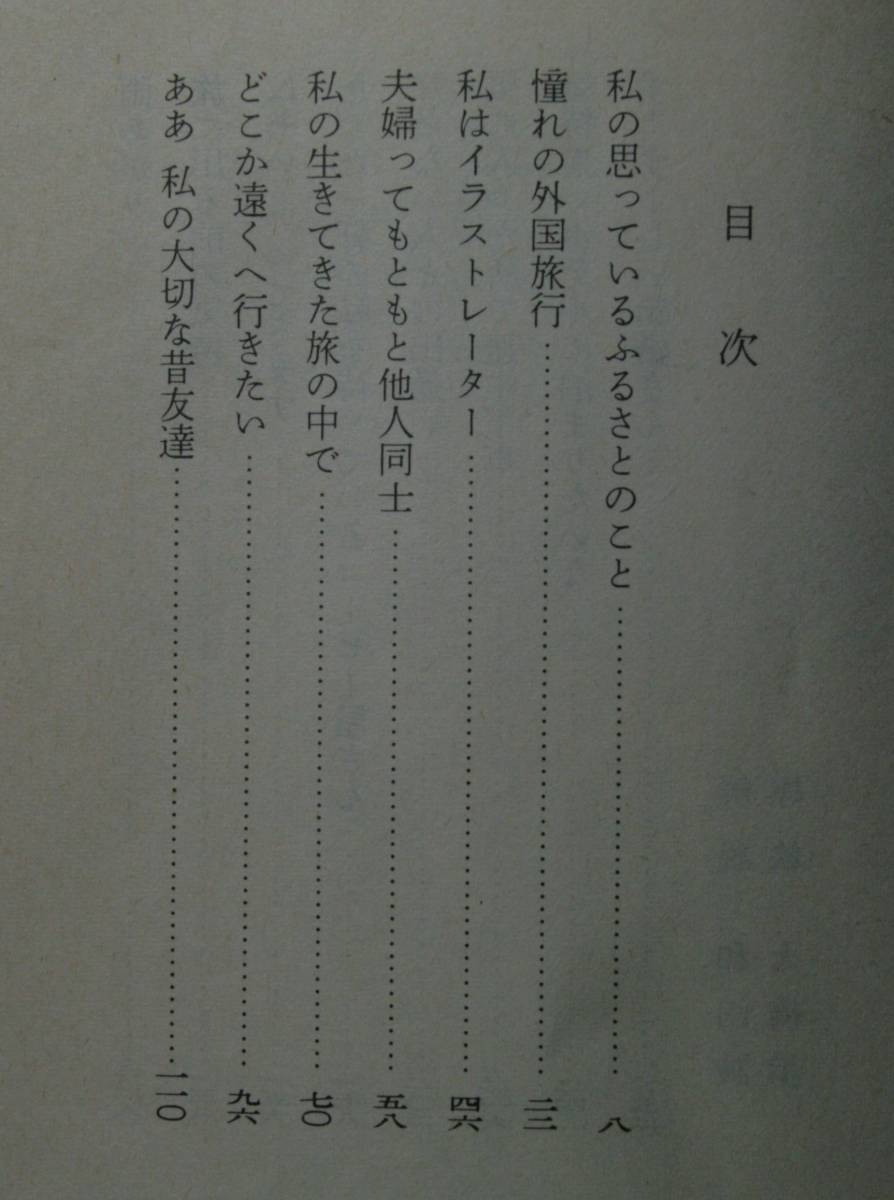 目 次
私の思っているふるさとのこと……八
憧れの外国旅行……二二
私はイラストレーター……四六
夫婦ってもともと他人同士……五八
私の生きてきた旅の中で……七〇
どこか遠くへ行きたい……九六
ああ 私の大切な昔友達……一一〇